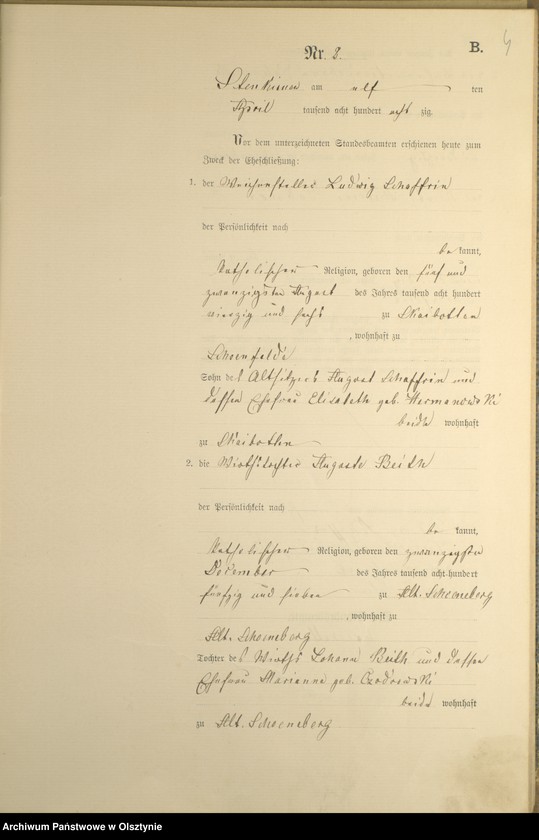 B. 4
Nr. 8.
Stenkienen am elf ten
April tausend acht hundert acht zig
Vor dem unterzeichneten Standesbeamten erschienen heute zum
Zweck der Eheschließung:
1. der Weichensteller Ludwig Schaffrin
der Persönlichkeit nach
be kannt,
katholischer Religion, geboren den fünf und
zwanzigsten August des Jahres tausend acht hundert
vierzig und sechs zu Skaibotten
, wohnhaft zu
Schoenfelde
Sohn des Altsitzers August Schaffrin und
dessen Ehefrau Elisabeth geb. Hermanowski
beide wohnhaft
zu Skaibotten
2. die Wirthstochter Auguste Beith
der Persönlichkeit nach
be kannt,
katholischer Religion, geboren den zwanzigsten
December des Jahres tausend acht hundert
fünfzig und sieben zu Alt. Schoeneberg
, wohnhaft zu
Alt. Schoeneberg
Tochter des Wirths Johann Beith und dessen
Ehefrau Marianne geb. Czodrowski
beide wohnhaft
zu Alt. Schoeneberg
Archiwum Państwowe w Olsztynie